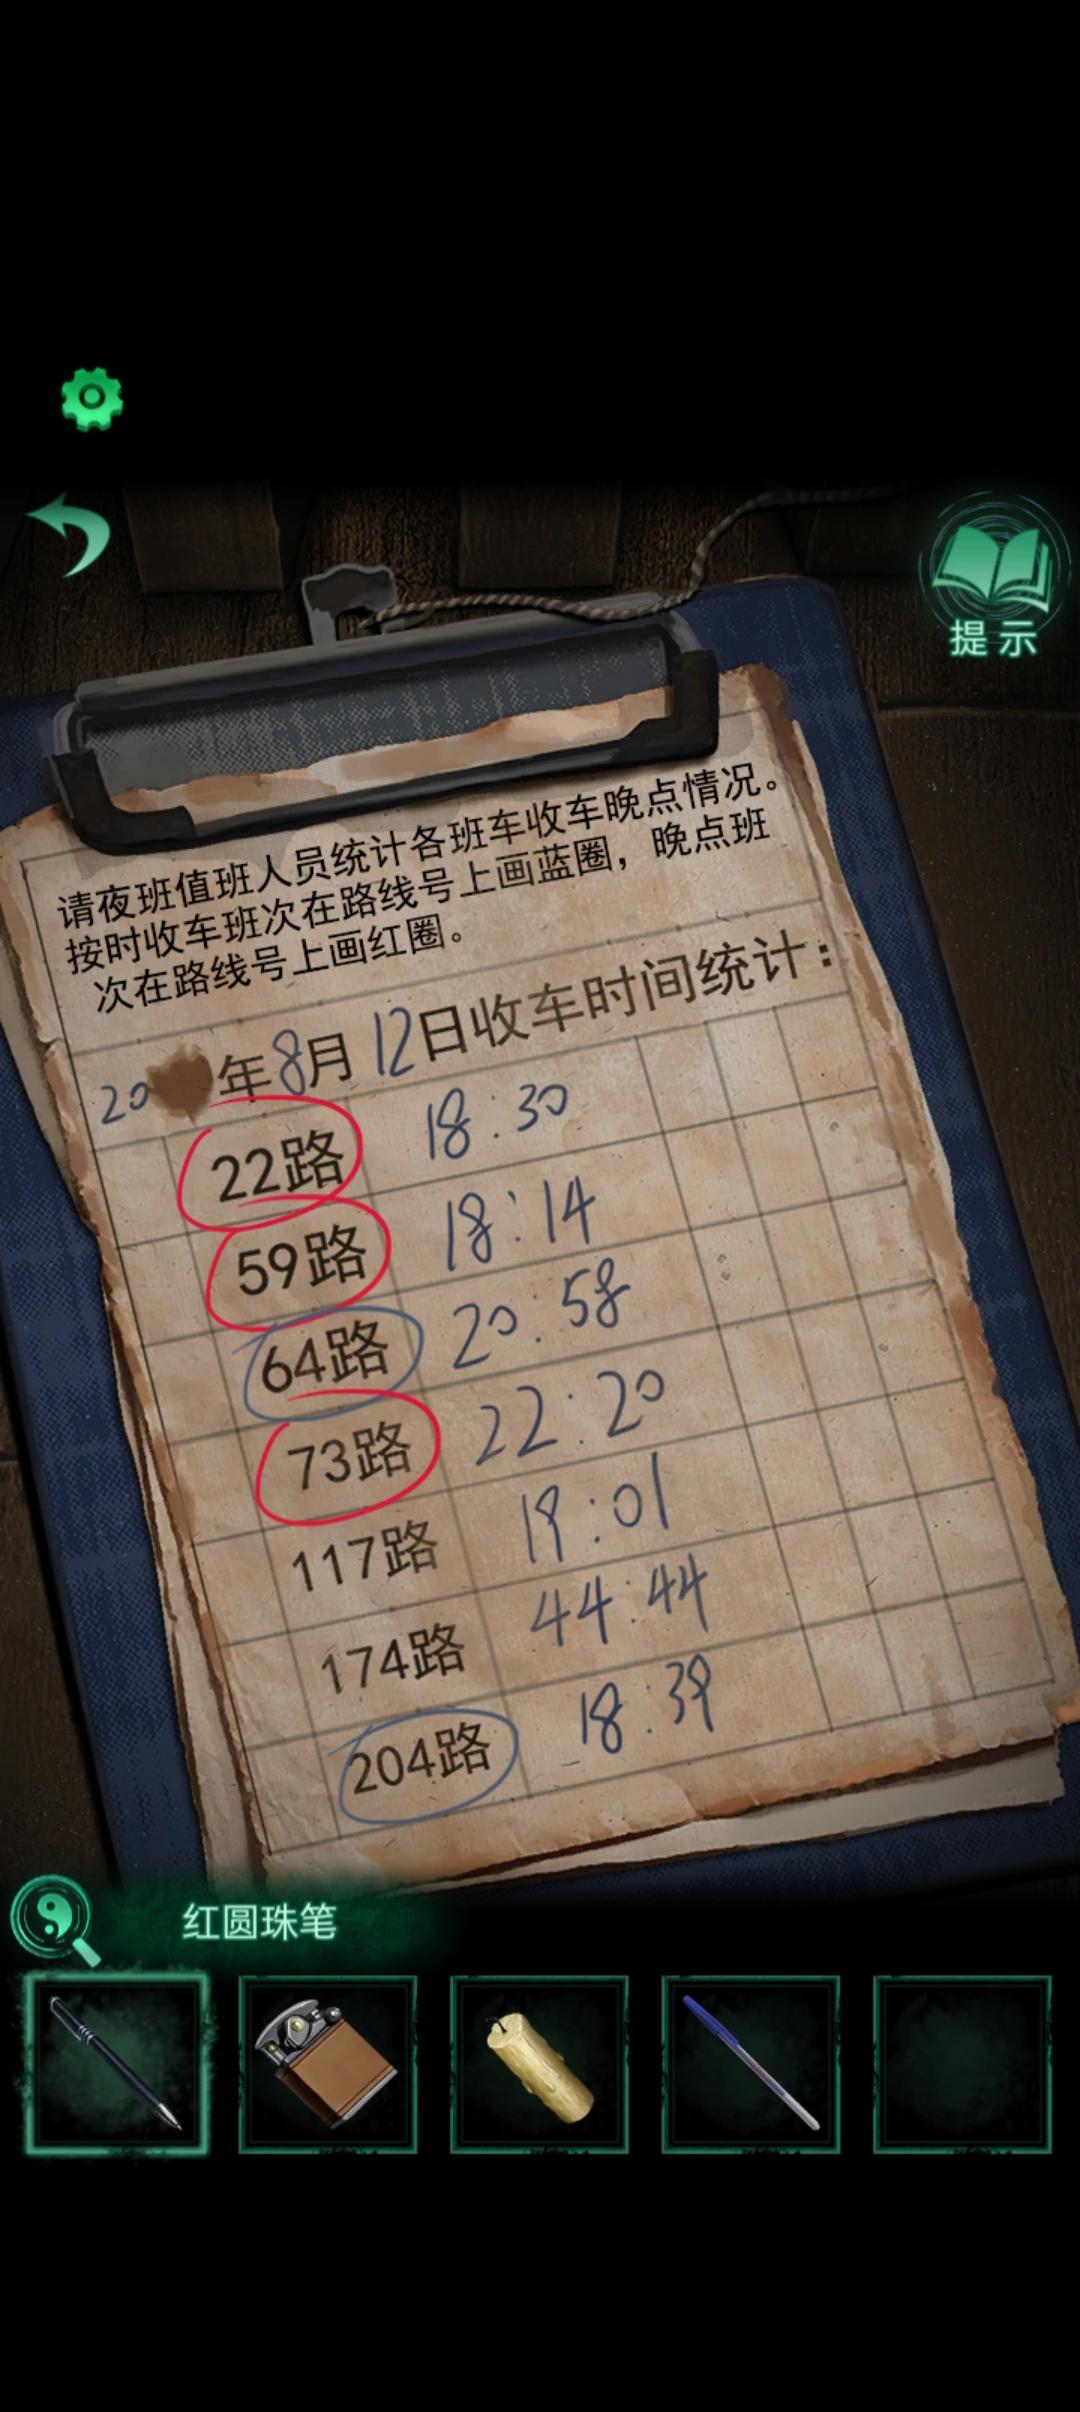 提示
请夜班值班人员统计各班车收车晚点情况。
按时收车班次在路线号上画蓝圈，晚点班
次在路线号上画红圈。
20 年8月12日收车时间统计：
22路 18:30
59路 18:14
64路 20:58
73路 22:20
117路 19:01
174路 44:44
204路 18:39
红圆珠笔